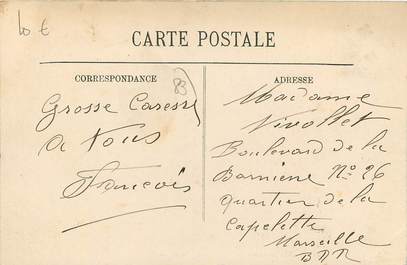 10 €
CARTE POSTALE
CORRESPONDANCE
83
ADRESSE
Grosse Caresse
a Vous
François
Madame
Vivollet
Boulevard de la
Barriere No 26
quartier de la
Capelette
Marseille
BDR